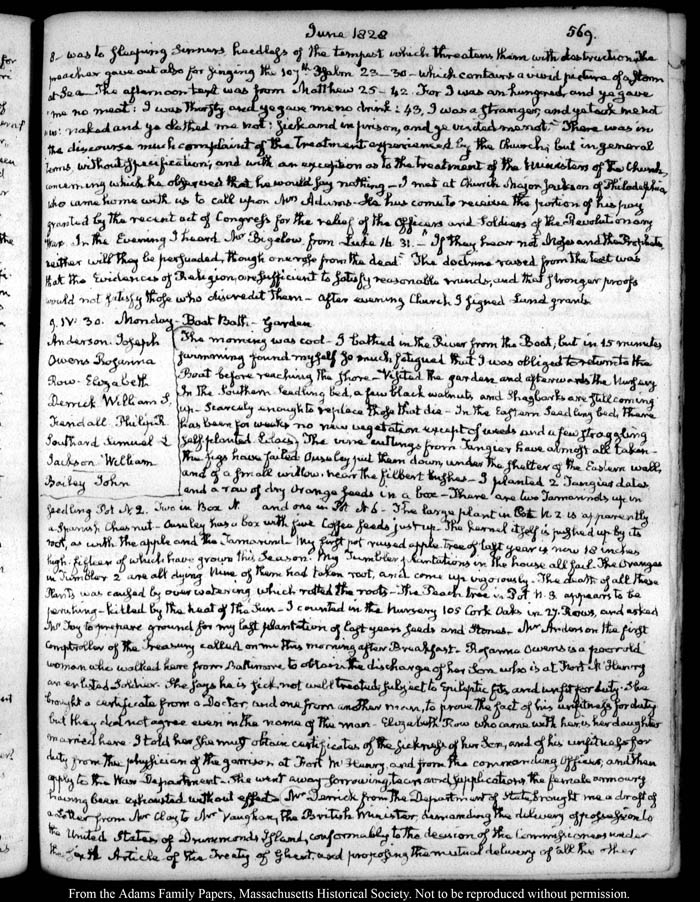 June 1828 569.
8- was to sleeping Sinners heedless of the tempest which threatens them with destruction. The
preacher gave out also for singing the 107th Psalm 23-30- which contains a vivid picture of a storm
at Sea- The afternoon text was from Matthew 25-42. For I was an hungred, and ye gave
me no meat: I was thirsty and ye gave me no drink: 43, I was a stranger, and ye took me not
in: naked and ye clothed me not: sick and in prison, and ye visited me not- There was in
the discourse much complaint of the treatment experienced by the Church; but in general
terms, without specification; and with an exception as to the treatment of the Ministers of the Church,
concerning which he observed that he would say nothing- I met at Church Major Jackson of Philadelphia
who came home with us to call upon Mrs Adams- He has come to receive the portion of his pay
granted by the recent act of Congress for the relief of the Officers and Soldiers of the Revolutionary
War. In the Evening I heard Mr Bigelow, from Luke 16. 31.- If they hear not Moses and the Prophets,
neither will they be persuaded, though one rose from the dead- The doctrine raised from the text was
that the Evidences of Religion, are sufficient to satisfy reasonable minds, and that stronger proofs
would not satisfy those who discredit them- After evening Church I signed Land grants.
9. IV: 30. Monday- Boat Bath.- Garden
Anderson. Joseph
Owens Rosanna
Row- Elizabeth
Derrick William S.
Kendall. Philip R.
Southard Samuel L
Jackson William
Bailey John
The morning was cool- I bathed in the River from the Boat, but in 15 minutes
swimming found myself so much fatigued that I was obliged to return to the
Boat before reaching the shore- Visited the garden and afterwards the Nursery
In the Southern Seedling bed, a few black walnuts, and Shagbarks are still coming
up- scarcely enough to replace those that die- In the Eastern Seedling bed, there
has been for weeks no new vegetation except of weeds and a few straggling
self planted Lilacs; The vine cuttings from Tangier have almost all taken-
The figs have failed Ouseley put them down, under the shelter of the Eastern wall,
and of a small willow near the filbert bushes- I planted 2 Tangier dates
and a row of dry Orange seeds in a box- There are two Tamarinds up in
seedling Pot N. 2. Two in Box N. and one in Pot N 6- The large plant in Pot N. 2 is apparently
a Spanish Chesnut- Ouseley has a box with five Coffee seeds just up. The kernel itself is pushed up by its
root, as with the apple and the Tamarind. My first pot raised apple-tree of last year is now 18 inches
high. fifteen of which have grown this Season. My Tumbler Plantations in the house all fail. The Oranges
in Tumbler 2 are all dying Nine of them had taken root, and come up vigorously- The death of all these
Plants was caused by over watering which rotted the roots- The Peach tree in Pot N. 3. appears to be
perishing- killed by the heat of the Sun- I counted in the Nursery 105 Cork Oaks in 27. Rows, and asked
Mr Foy to prepare ground for my last plantation of last years seeds and Stones- Mr Anderson the first
Comptroller of the Treasury called on me this morning after Breakfast- Rosanna Owens is a poor old
woman who walked here from Baltimore to obtain the discharge of her Son who is at Fort McHenry
an enlisted Soldier. She says he is sick, not well treated, subject to Epileptic fits, and unfit for duty. She
brought a certificate from a Doctor, and one from another man, to prove the fact of his unfitness for duty
but they did not agree even in the name of the man- Elizabeth Row who came with her is her daughter
married here. I told her she must obtain certificates of the sickness of her Son, and of his unfitness for
duty from the physician of the garrison at Fort McHenry, and from the commanding Officer, and then
apply to the War Department- She went away sorrowing, tears and supplications, the female armoury
having been exhausted without effect- Mr Derrick from the Department of State brought me a draft of
a Letter from Mr Clay to Mr Vaughan, the British Minister, demanding the delivery of possession to
the United States of Drummonds Island, conformably to the decision of the Commissioners under
the sixth Article of the Treaty of Ghent, and proposing the mutual delivery of all the other
From the Adams Family Papers, Massachusetts Historical Society. Not to be reproduced without permission.